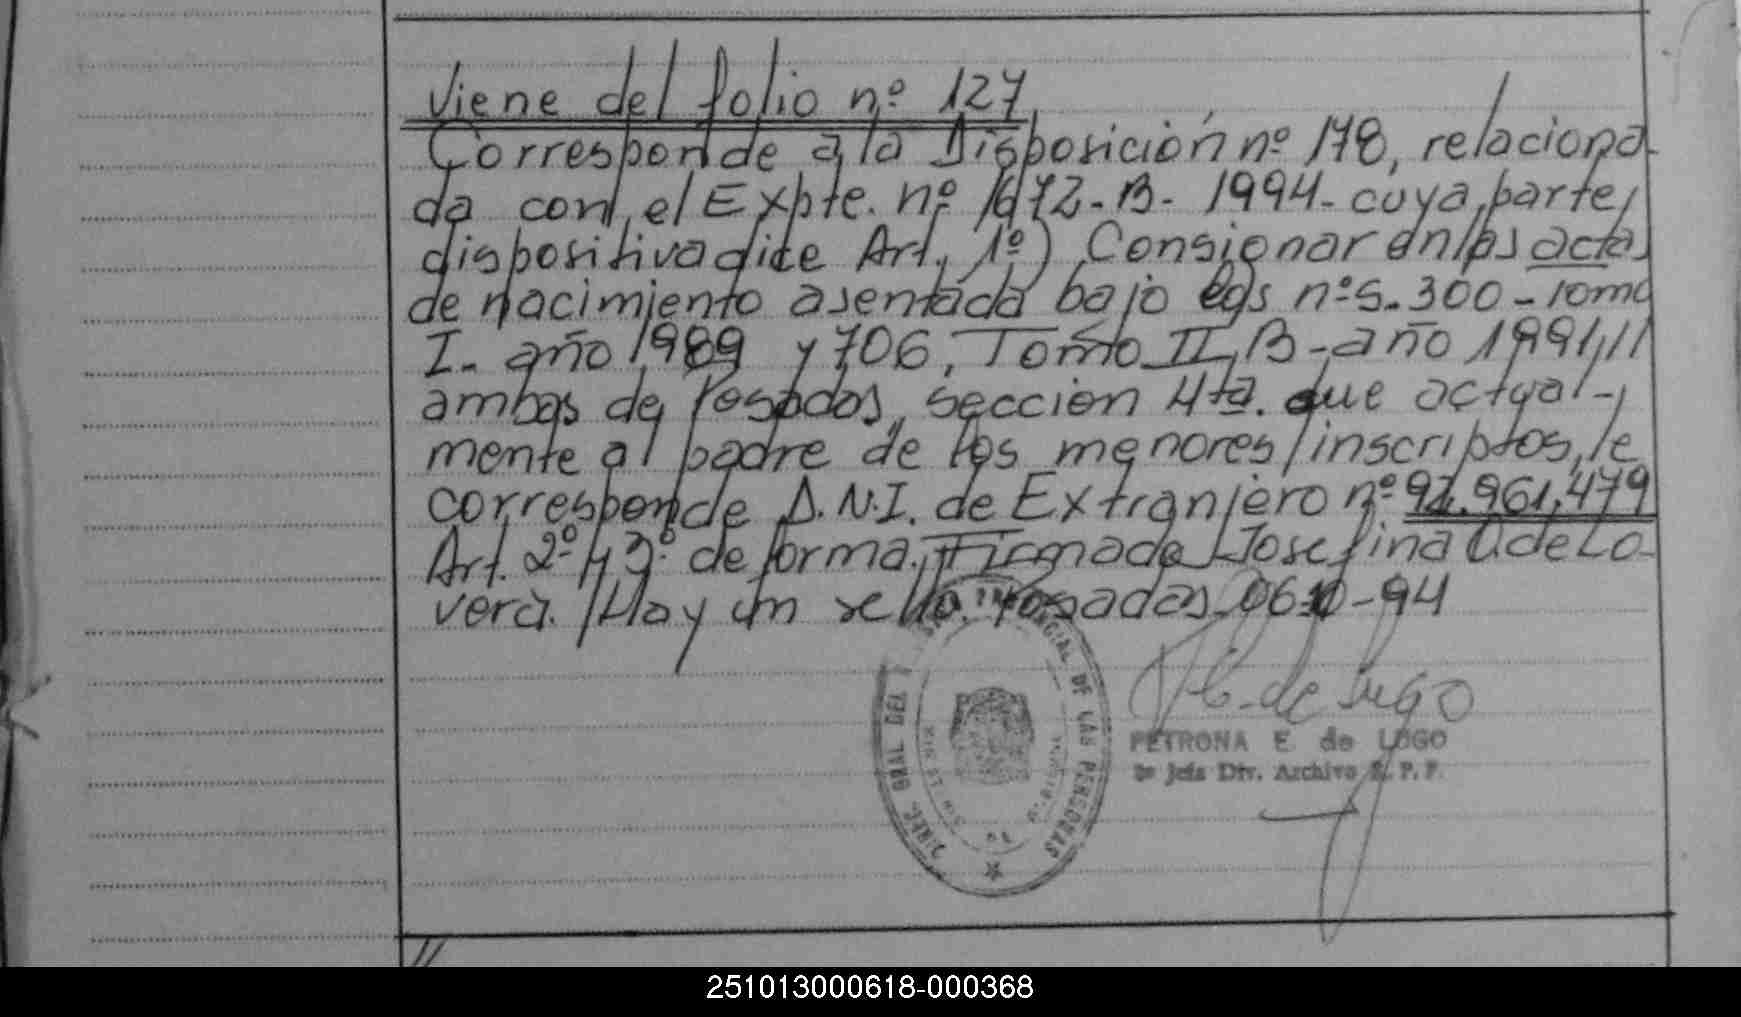 Viene del folio nº 127
Corresponde a la Disposición nº 178, relaciona
da con el Expte. nº 1672-B- 1994- cuya parte
dispositiva dice Art. 1º) Consignar en las actas
de nacimiento asentada bajo los nºs. 300 - Tomo
I- año 1989 y 706, Tomo II B- año 1991,//
ambas de Posadas, sección 4ta. que actual-
mente al padre de los menores inscriptos, le
corresponde D.N.I. de Extranjero nº 92.961.479
Art. 2º y 3º de forma. Firmada Josefina O. de Lo-
vera. Hay un sello. Posadas 06-10-94
DIREC. GRAL DEL PROVINCIAL DE LAS PERSONAS
PETRONA E. de LUGO
Jefa Div. Archivo R. P. P.
//
251013000618-000368